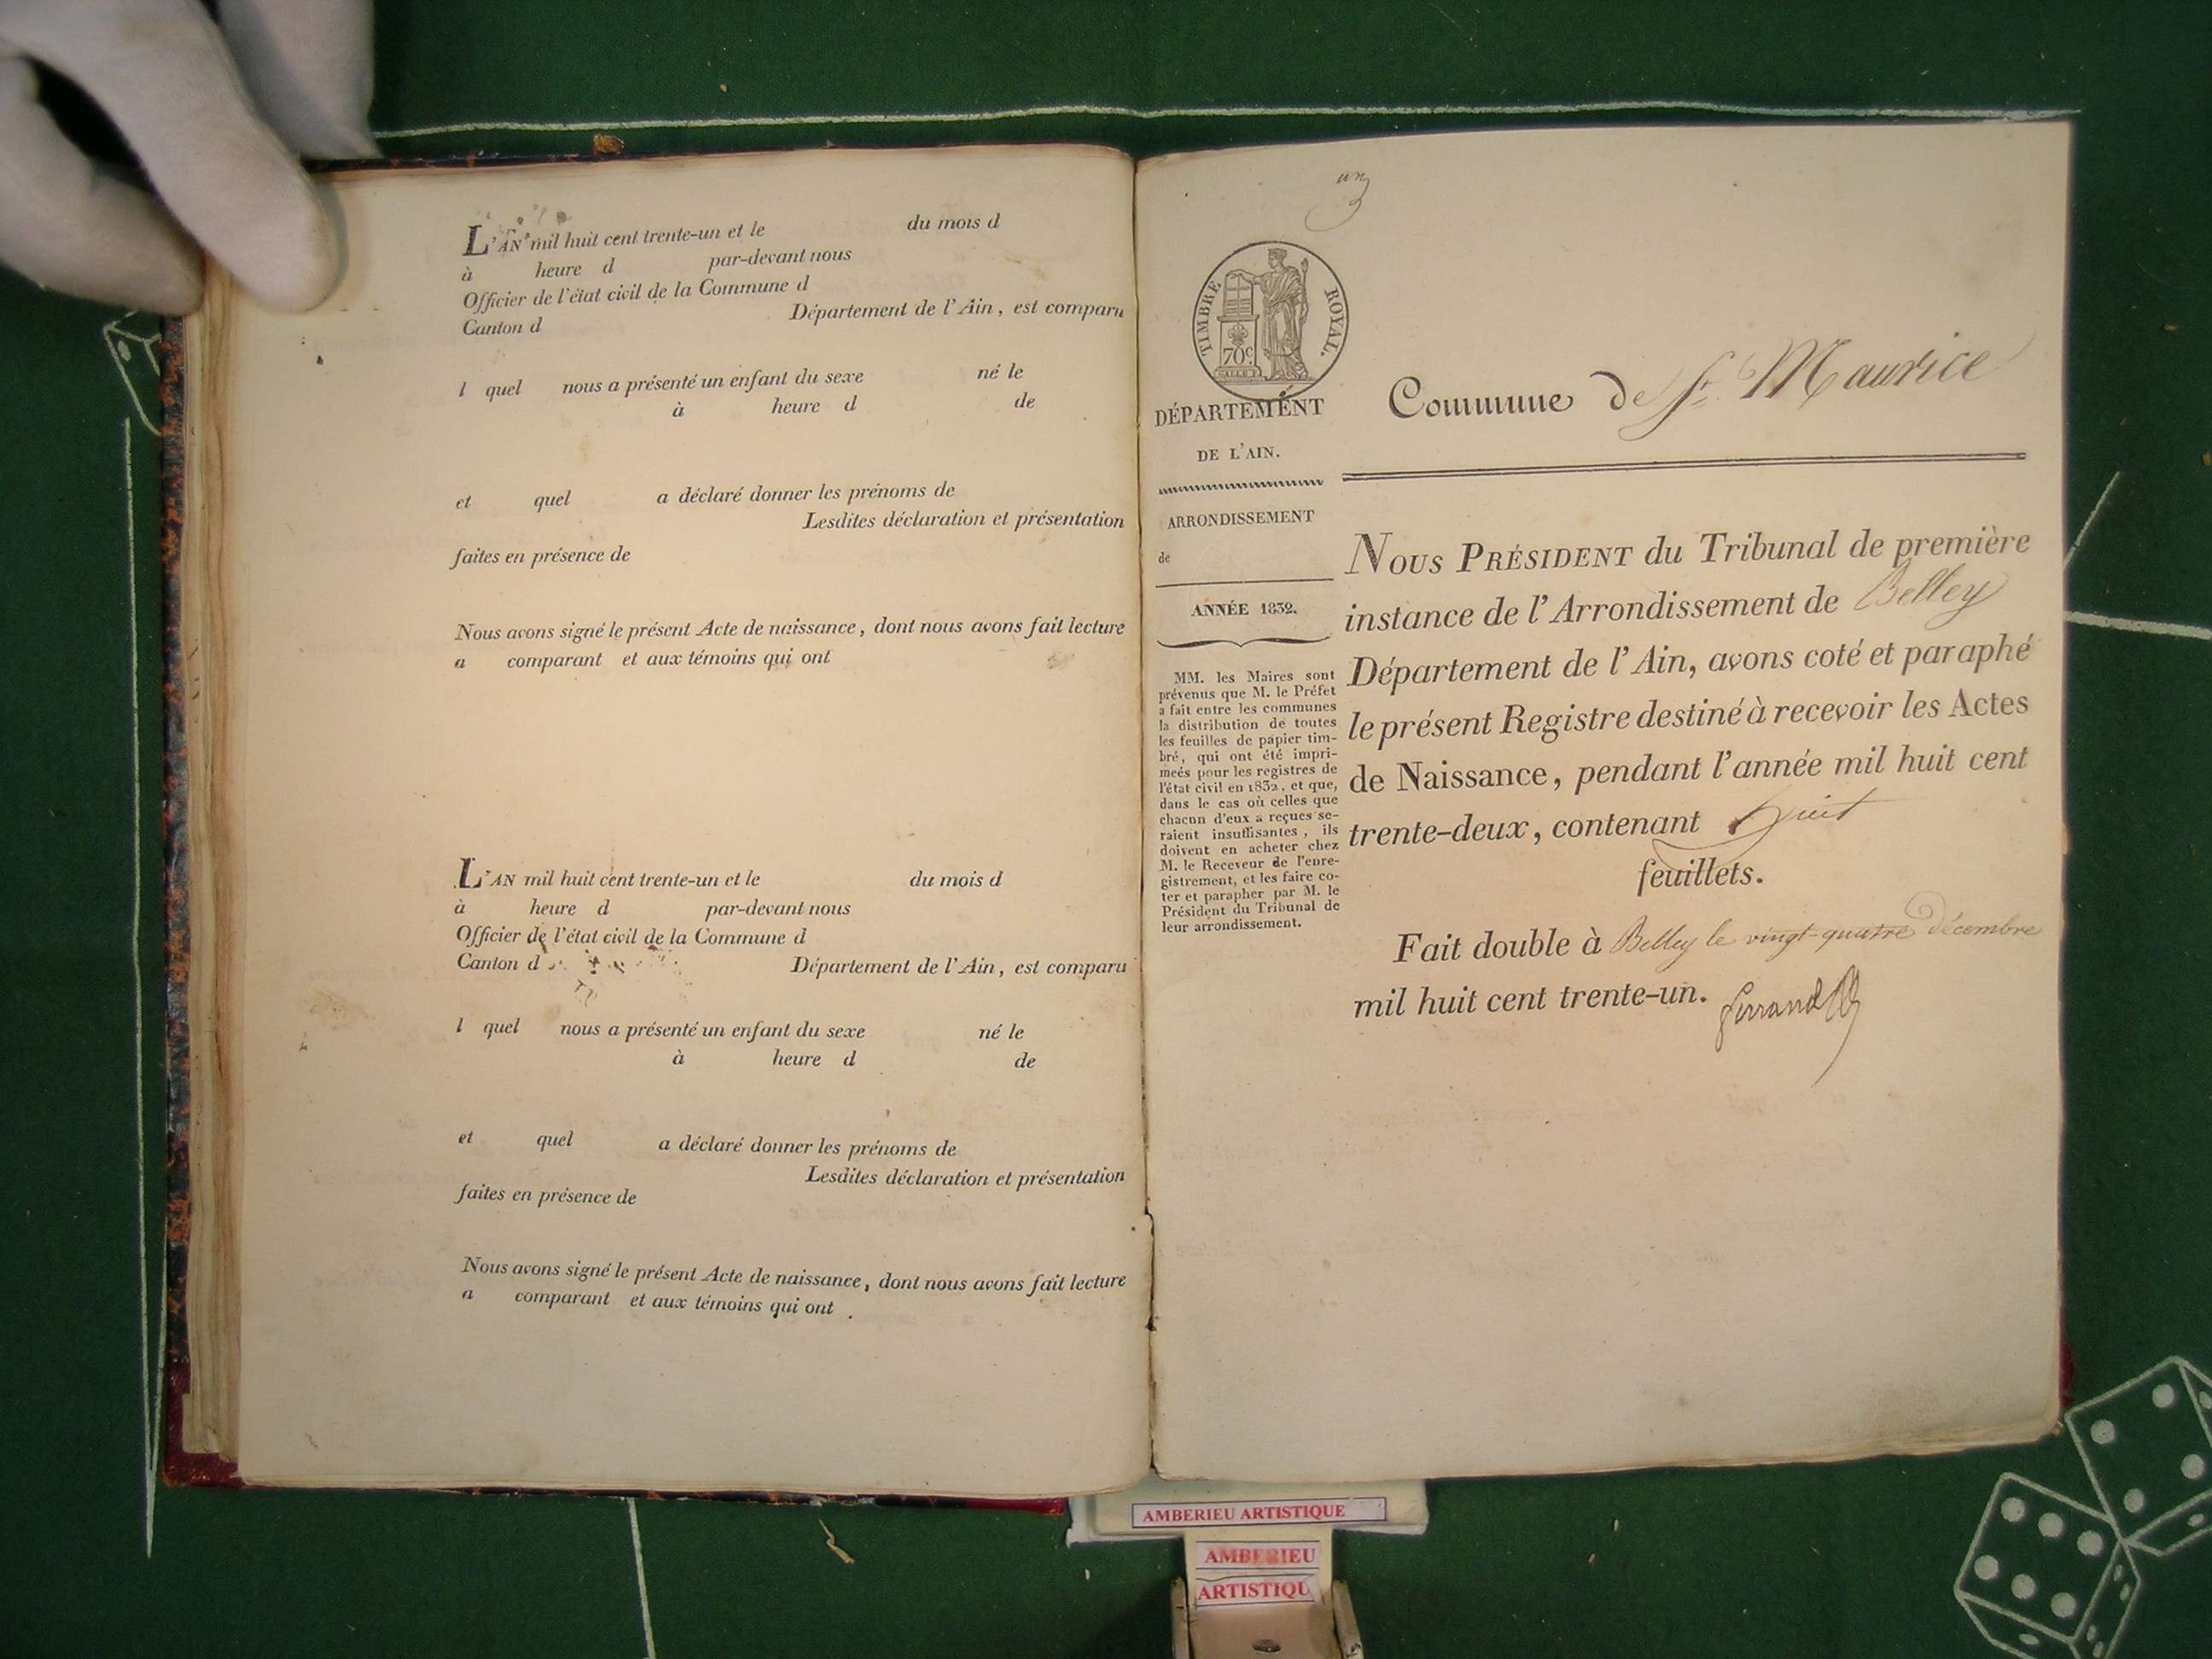 L'AN mil huit cent trente-un et le du mois d
à heure d par-devant nous
Officier de l'état civil de la Commune d
Canton d Département de l'Ain, est comparu
l quel nous a présenté un enfant du sexe né le
à heure d de
et quel a déclaré donner les prénoms de
Lesdites déclaration et présentation
faites en présence de
Nous avons signé le présent Acte de naissance, dont nous avons fait lecture
a comparant et aux témoins qui ont
L'AN mil huit cent trente-un et le du mois d
à heure d par-devant nous
Officier de l'état civil de la Commune d
Canton d Département de l'Ain, est comparu
l quel nous a présenté un enfant du sexe né le
à heure d de
et quel a déclaré donner les prénoms de
Lesdites déclaration et présentation
faites en présence de
Nous avons signé le présent Acte de naissance, dont nous avons fait lecture
a comparant et aux témoins qui ont
un
TIMBRE ROYAL.
70c
DÉPARTEMENT
DE L'AIN.
ARRONDISSEMENT
de
ANNÉE 1832.
MM. les Maires sont
prévenus que M. le Préfet
a fait entre les communes
la distribution de toutes
les feuilles de papier tim-
bré, qui ont été impri-
meés pour les registres de
l'état civil en 1832, et que,
dans le cas où celles que
chacun d'eux a reçues se-
raient insuffisantes, ils
doivent en acheter chez
M. le Receveur de l'enre-
gistrement, et les faire co-
ter et parapher par M. le
Président du Tribunal de
leur arrondissement.
Commune De St. Maurice
NOUS PRÉSIDENT du Tribunal de première
instance de l'Arrondissement de Belley
Département de l'Ain, avons coté et paraphé
le présent Registre destiné à recevoir les Actes
de Naissance, pendant l'année mil huit cent
trente-deux, contenant huit
feuillets.
Fait double à Belley le vingt-quatre Décembre
mil huit cent trente-un. Ferrand
AMBERIEU ARTISTIQUE
AMBERIEU
ARTISTIQU